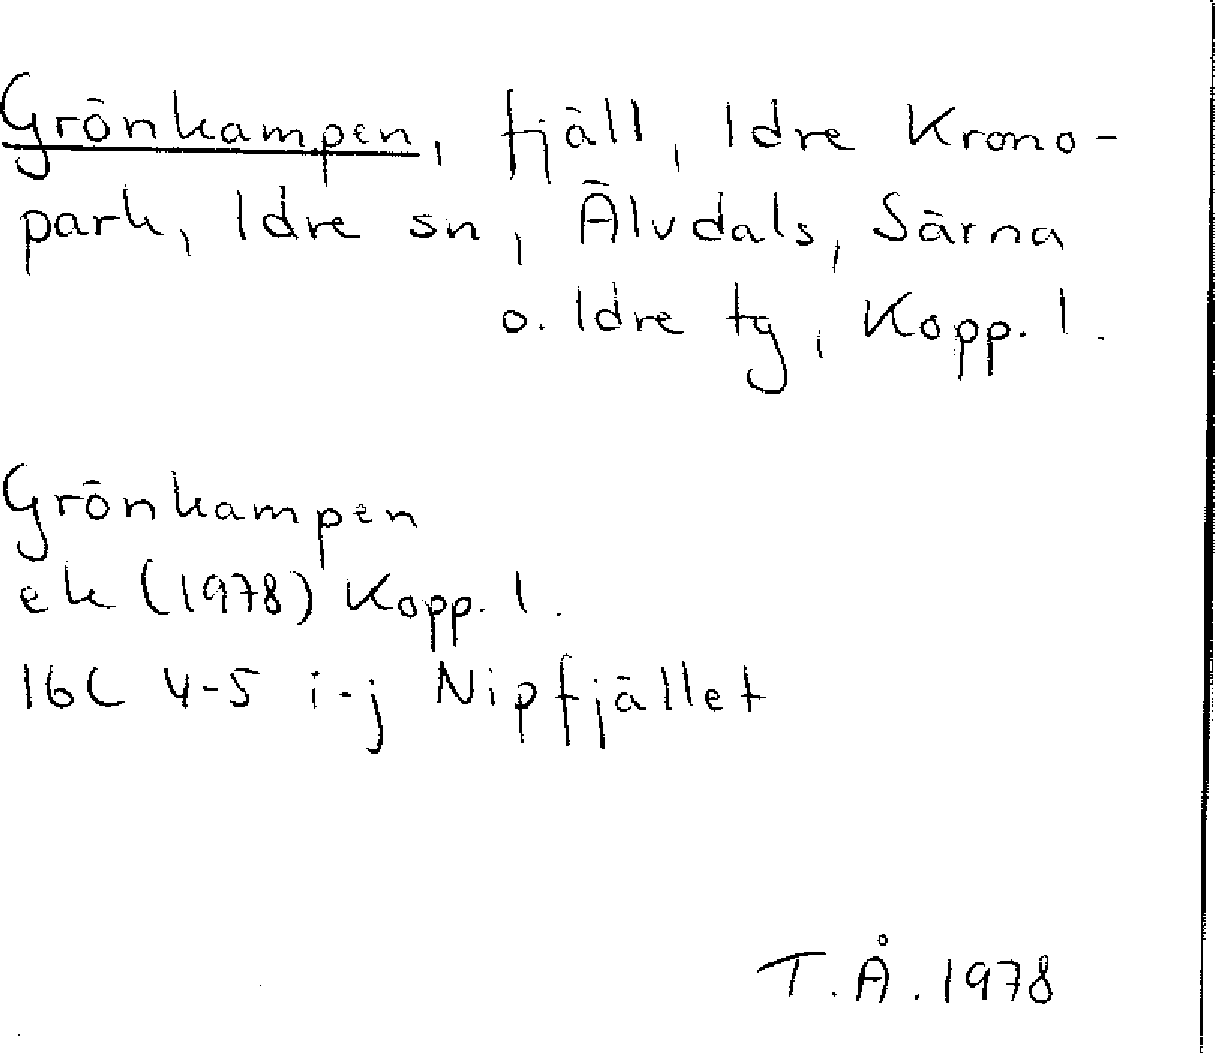 Grönkampen, fjäll, Idre Krono-
park, Idre sn, Älvdals, Särna
o. Idre tg, Kopp. l.
Grönkampen
ek (1978) Kopp. l.
16C 4-5 i-j Nipfjället
T.Å. 1978